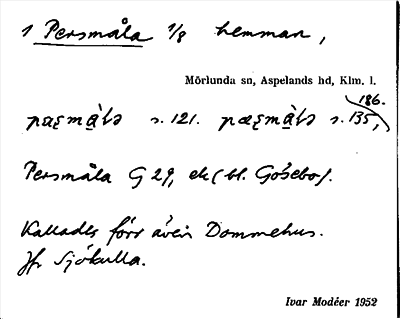 1 Persmåla 1/8 hemman,
Mörlunda sn, Aspelands hd, Klm. l.
186.
pæʂmå̱lə s. 121. pæʂmå̱lə s. 135,
Persmåla G 29, ek (bl. Gösebo).
Kallades förr även Dommehus.
Jfr Sjökulla.
Ivar Modéer 1952